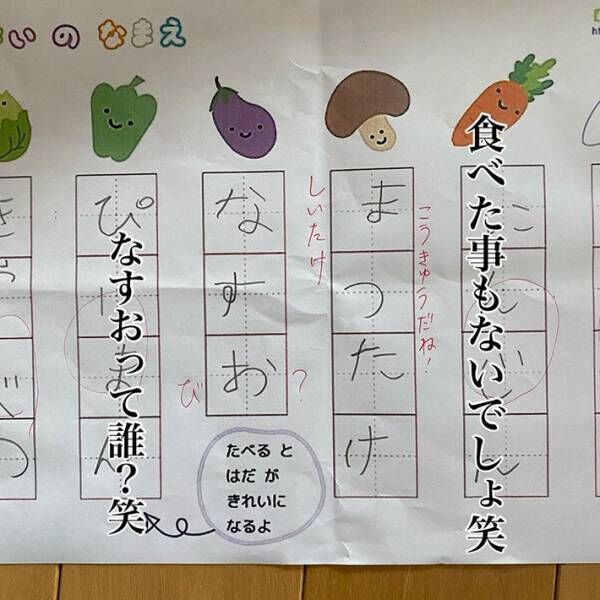 いのなまえ
食べた事もないでしょ笑
こうきゅうだね!
まつたけ
しいたけ
なすお
び ?
なすおって誰?笑
ぴーまん
たべる と
はだ が
きれいに
なるよ